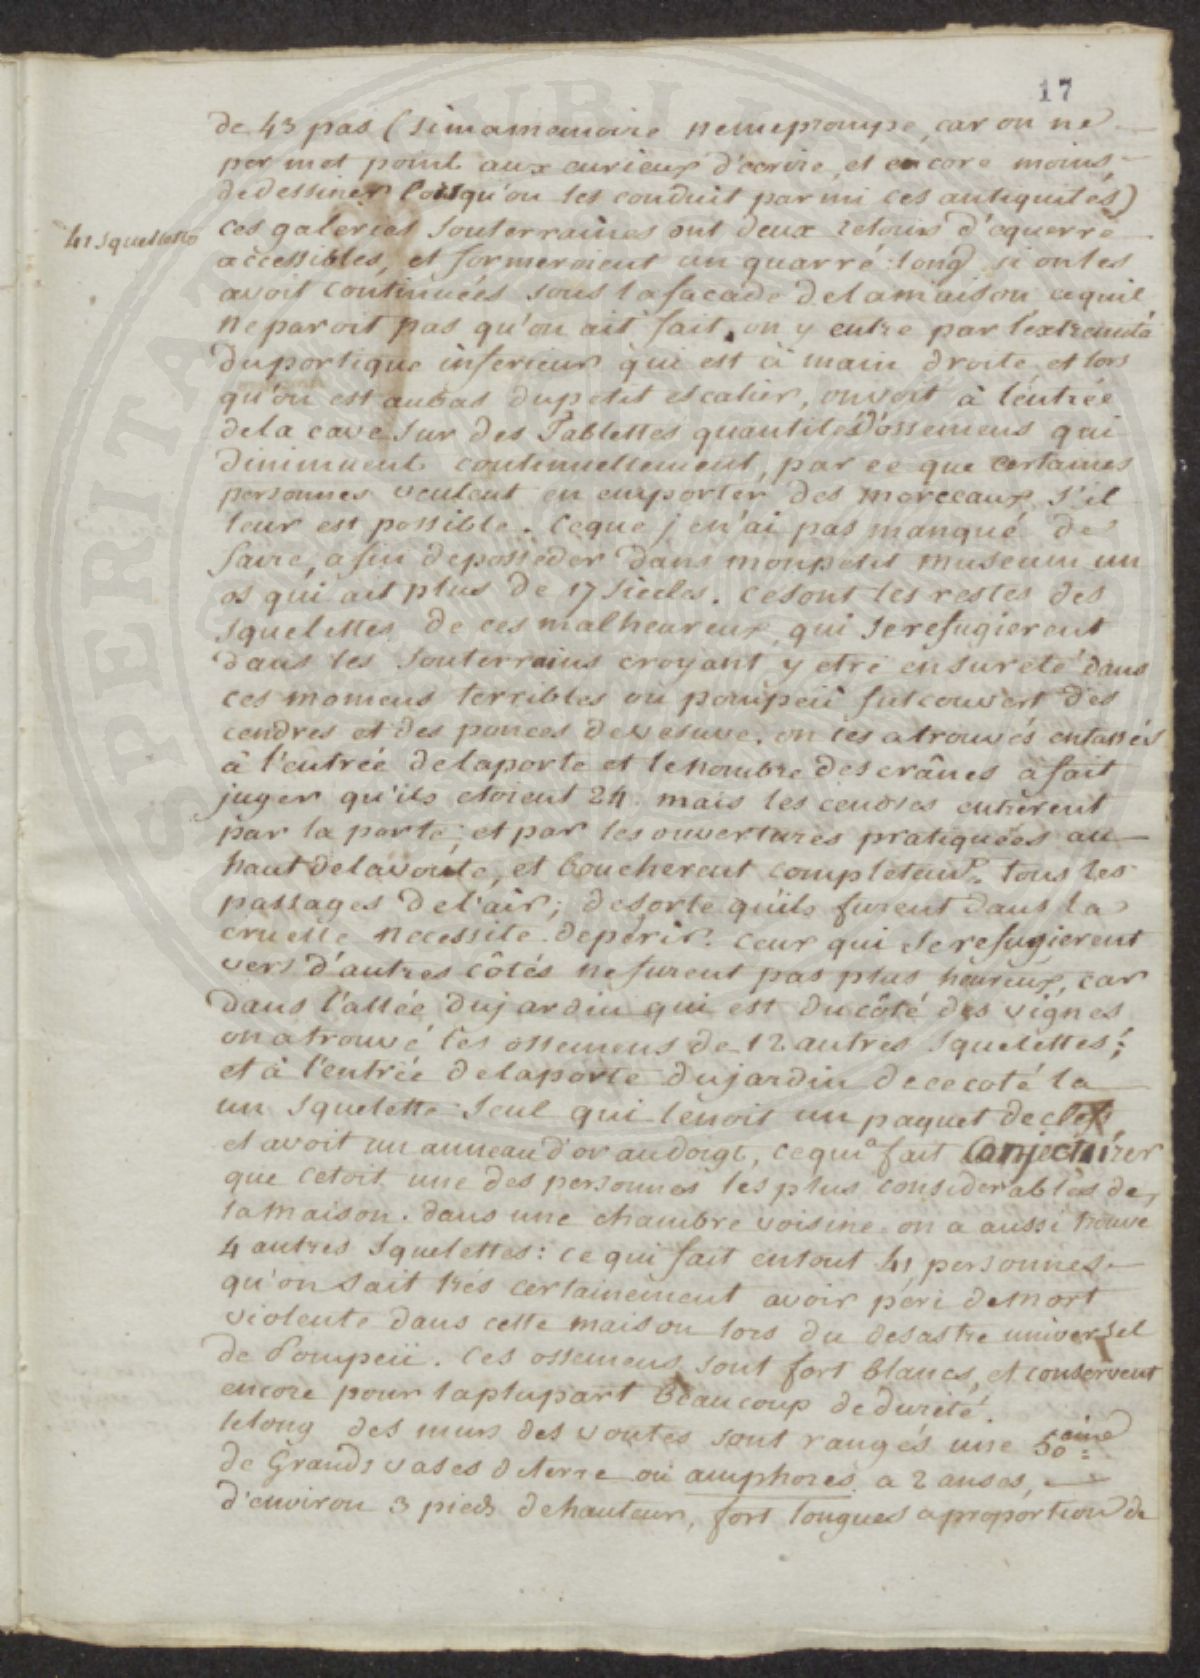 17
de 43 pas (si ma memoire ne me trompe, car on ne
permet point aux curieux d'ecrire, et encore moins
de dessiner lorsqu'on les conduit parmi ces antiquités)
41 squelettes
ces galeries souterraines ont deux retours d'equerre
accessibles, et formeroient un quarré long si on les
avoit continuées sous la facade de la maison ce qu'il
ne paroit pas qu'on ait fait. on y entre par l'extremité
du portique inferieur qui est à main droite, et lors
qu'on est au bas du petit escalier, on voit à l'entrée
de la cave sur des Tablettes quantité d'ossemens qui
diminuent continuellement, par ce que certaines
personnes veulent en emporter des morceaux s'il
leur est possible. ce que je n'ai pas manqué de
faire, afin de posséder dans mon petit museum un
os qui ait plus de 17 siècles. ce sont les restes des
squelettes de ces malheureux qui se refugierent
dans les souterrains croyant y etre en sureté dans
ces momens terribles ou pompeii fut couvert des
cendres et des ponces de vesuve. on les a trouvés entassés
à l'entrée de la porte et le nombre des crânes à fait
juger qu'ils etoient 24. mais les cendres entrerent
par la porte, et par les ouvertures pratiquées au
haut de la voute, et boucherent completem.t tous les
passages de l'air; de sorte qu'ils furent dans la
cruelle necessité de périr. ceux qui se refugierent
vers d'autres côtés ne furent pas plus heureux, car
dans l'allée du jardin qui est du côté des vignes
on a trouvé les ossemens de 12 autres squelettes;
et à l'entrée de la porte du jardin de ce coté la
un squelette seul qui tenoit un paquet de clefs,
et avoit un anneau d'or au doigt, ce qui a fait Conjecturer
que cetoit une des personnes les plus considerables de
la maison. dans une chambre voisine on a aussi trouvé
4 autres squelettes: ce qui fait en tout 41 personnes
qu'on sait trés certainement avoir péri de mort
violente dans cette maison lors du desastre universel
de Pompeii. Ces ossemens sont fort blancs, et conservent
encore pour la plupart beaucoup de dureté.
le long des murs des voutes sont rangés une 50aine
de Grands vases de terre ou amphores a 2 anses,
d'environ 3 pieds de hauteur, fort longues a proportion de
SPERITATI PUBLICÆ